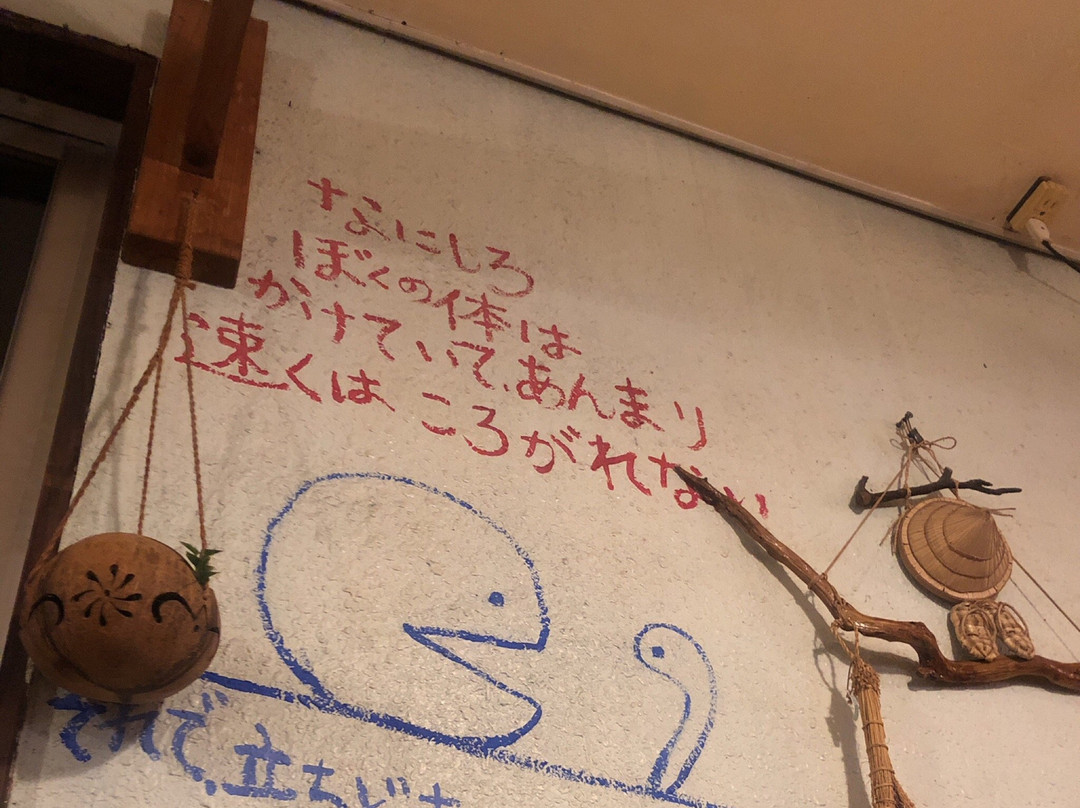 なにしろ
ぼくの体は
かけていて、あんまり
速くは ころがれない
それで、立ちど